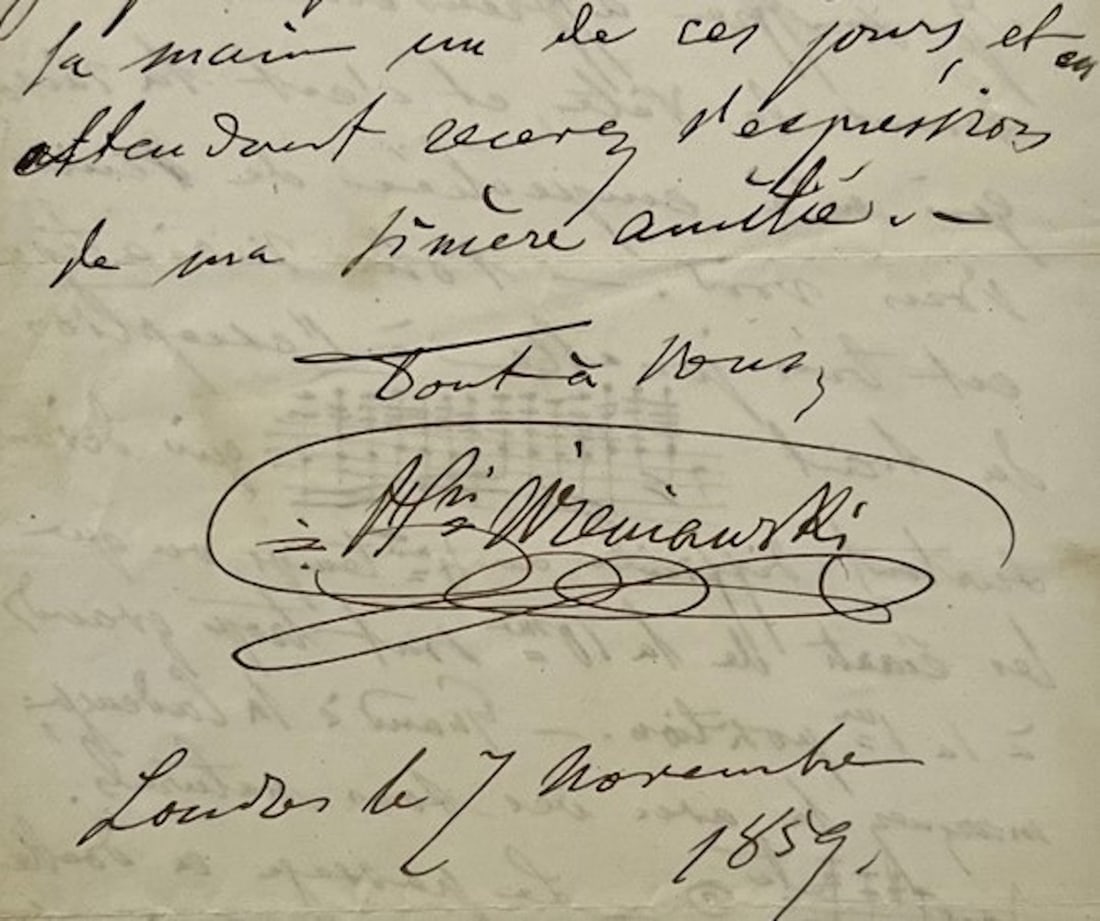 la main un de ces jours, et en
attendant recevez l'expression
de ma sincère amitié. –
Tout à Vous,
Hri Wieniawski
Londres le 7 Novembre
1859.